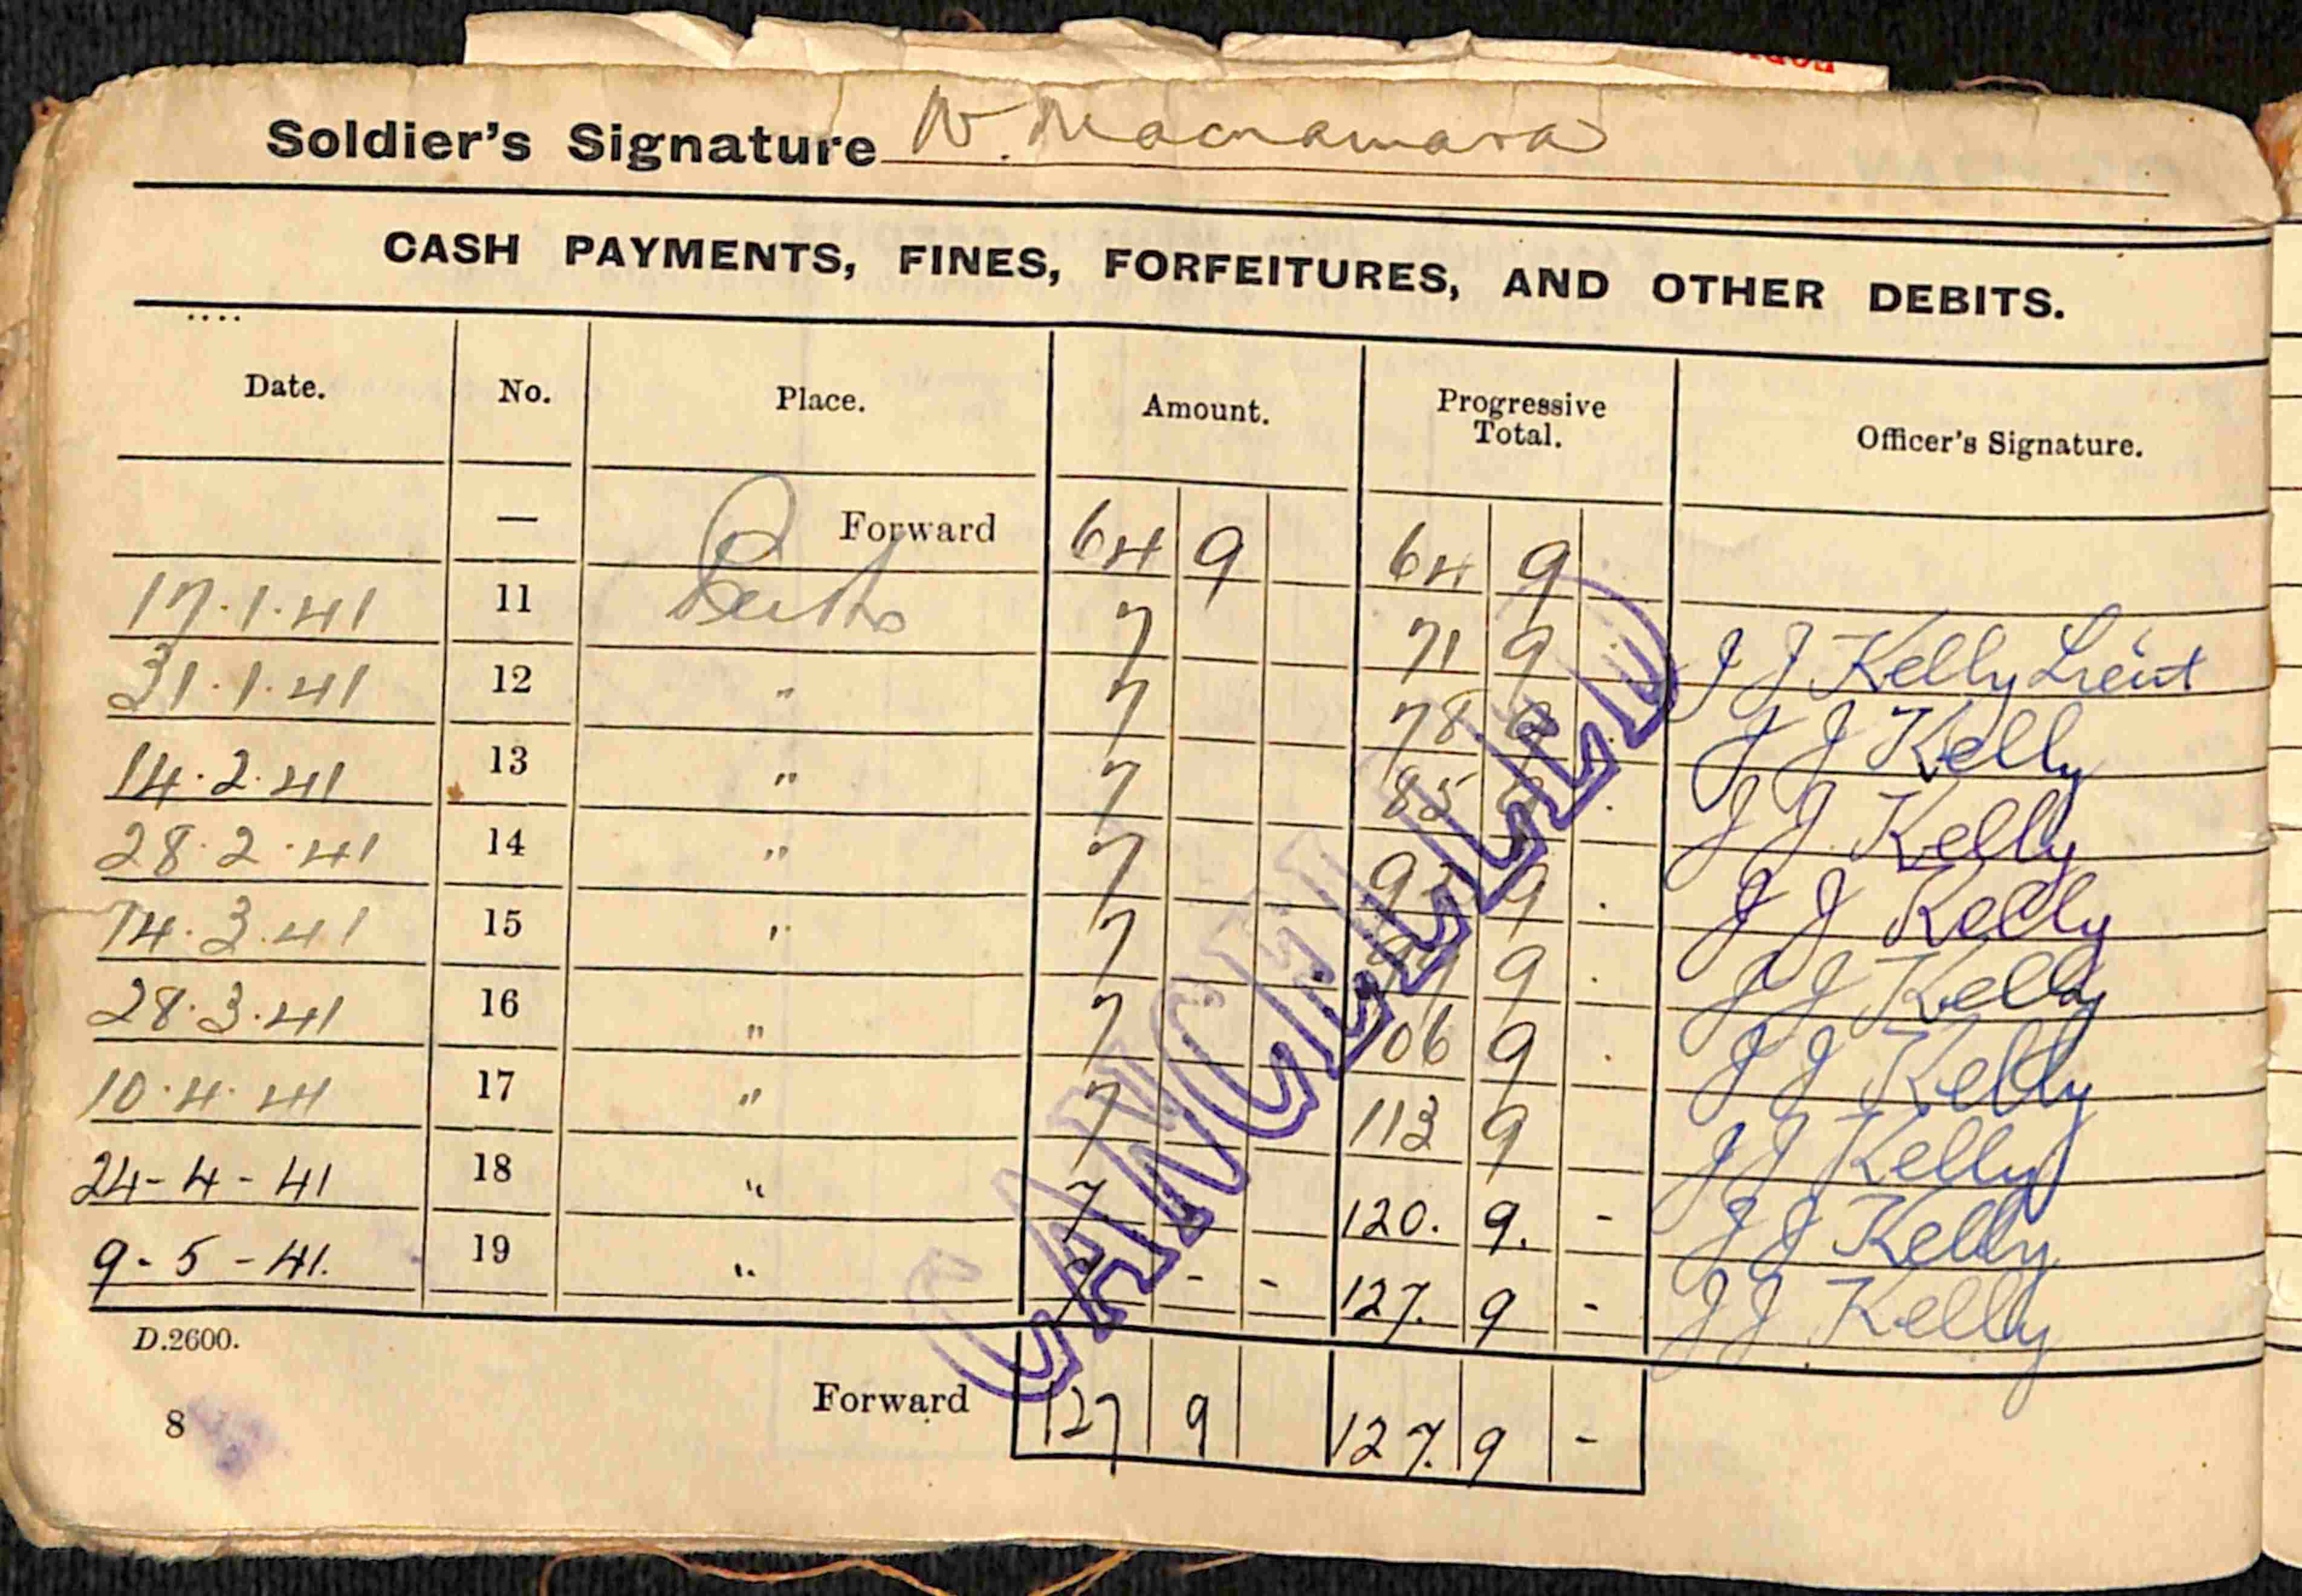 Soldier's Signature W. Macnamara
CASH PAYMENTS, FINES, FORFEITURES, AND OTHER DEBITS.
Date. No. Place. Amount. Progressive Total. Officer's Signature.
— Forward 64 9 64 9
17.1.41 11 Perth 7 71 9 J J Kelly Lieut
31.1.41 12 " 7 78 9 J J Kelly
14.2.41 13 " 7 85 9 J J Kelly
28.2.41 14 " 7 92 9 . J J Kelly
14.3.41 15 " 7 99 9 . J J Kelly
28.3.41 16 " 7 106 9 . J J Kelly
10.4.41 17 " 7 113 9 J J Kelly
24-4-41 18 " 7 120. 9. - J J Kelly
9-5-41. 19 " 7 - - 127. 9 - J J Kelly
CANCELLED
D.2600.
Forward 127 9 127. 9 -
8